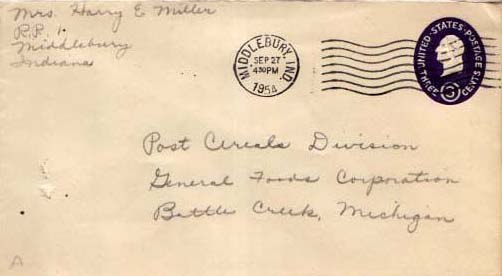 Mrs. Harry E Miller
R.R. 1
Middlebury
Indiana
MIDDLEBURY, IND.
SEP 27
430 PM
1954
UNITED STATES POSTAGE
3
THREE CENTS
Post Cereals Division
General Foods Corporation
Battle Creek, Michigan
A